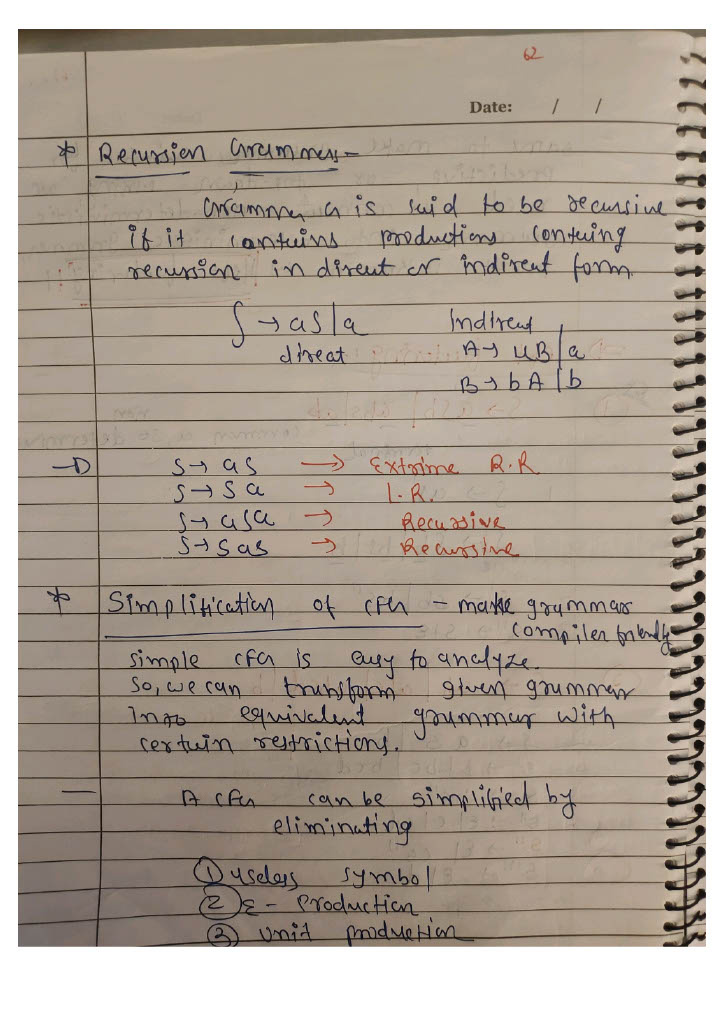 62
Date: / /
* Recursion Grammar -
Grammar G is said to be recursive
if it contains productions containg
recursion in direct or indirect form.
S → aS | a Indirect
direct A → aB | a
B → bA | b
→ S → aS → Extrime R.R
S → Sa → L.R.
S → aSa → Recursive
S → SaS → Recurssive
* Simplification of CFG - make grammar
compiler friendly
simple CFG is easy to analyze.
So, we can transform given grammar
into equivalent grammar with
certain restrictions.
— A CFG can be simplified by
eliminating
① useless symbol
② ε - Production
③ unit production